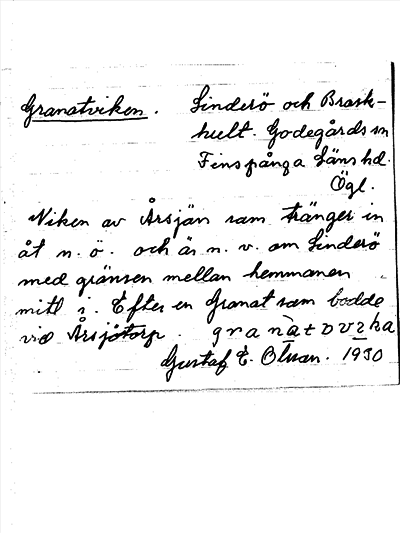 Granatviken. Sinderö och Brask-
hult. Godegårds sn
Finspånga Läns hd.
Ögl.
Viken av Årsjön som tränger in
åt n. ö. och är n. v. om Sinderö
med gränsen mellan hemmanen
mitt i. Efter en Granat som bodde
vid Årsjötorp.
Gustaf E. Olsson. 1930